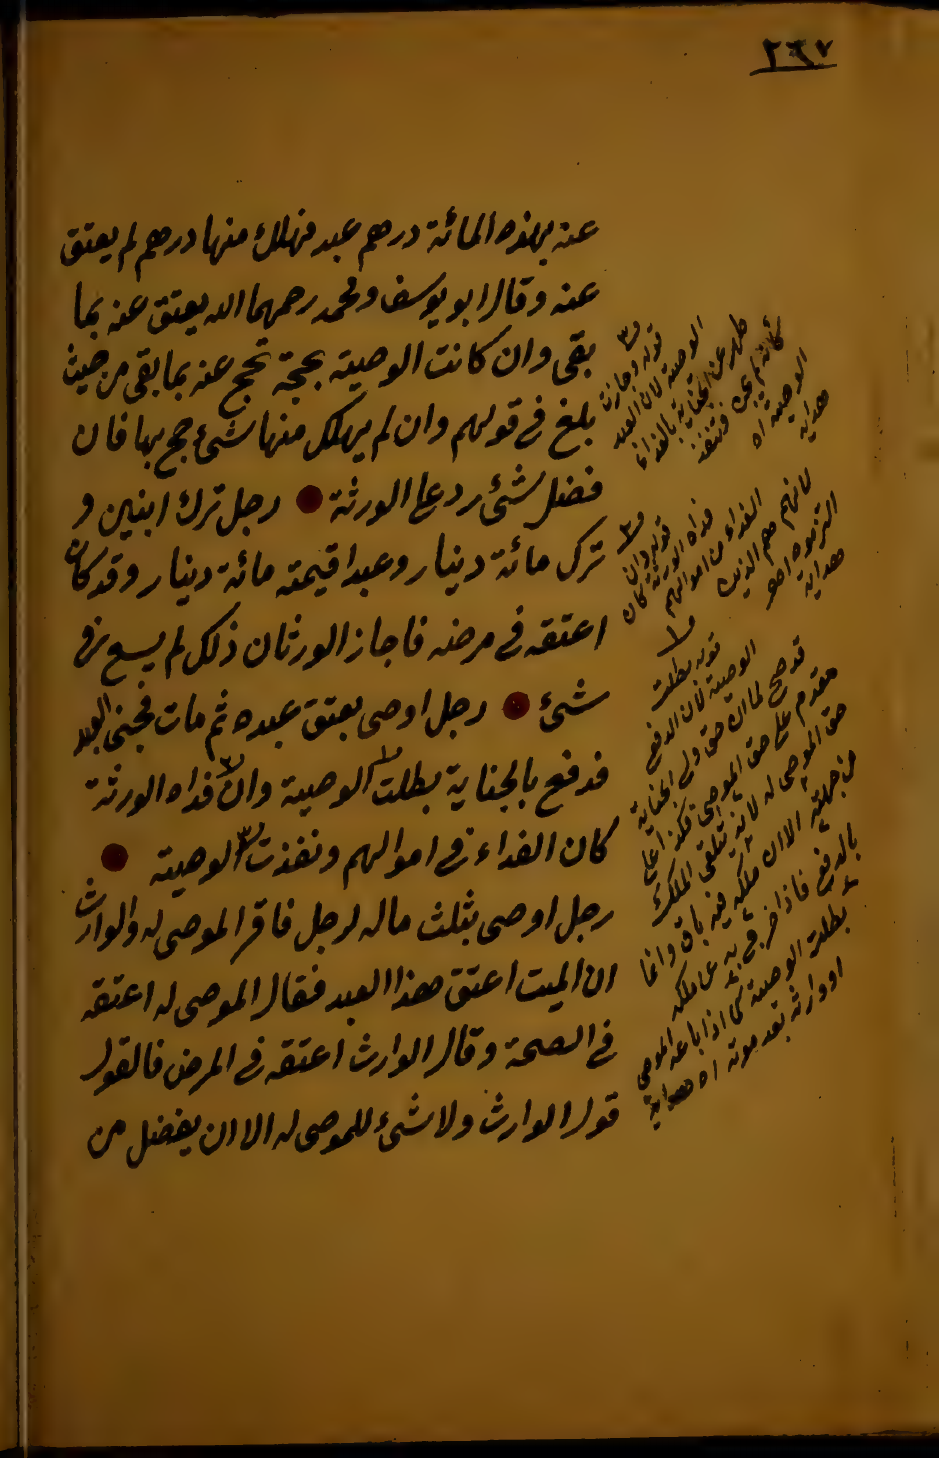 ٢٦٧
عنه بهذه المائة درهم عبد فهلك منها درهم لم يعتق
عنه وقال ابو يوسف ومحمد رحمهما الله يعتق عنه بما
بقى وان كانت الوصية بحجة تحج عنه بما بقى من حيث
بلغ فى قولهم وان لم يهلك منها شئ حج بها فان
فضل شئ رد على الورثة رجل ترك ابنين و
ترك مائة دينار وعبدا قيمته مائة دينار وقد كان
اعتقه فى مرضه فاجاز الورثان ذلك لم يسع فى
شئ رجل اوصى بعتق عبده ثم مات فجنى العبد
فدفع بالجناية بطلت١ الوصية وان٢ فداه الورثة
كان الفداء فى اموالهم ونفذت٣ الوصية
رجل اوصى بثلث ماله لرجل فاقر الموصى له والوارث
ان الميت اعتق هذا العبد فقال الموصى له اعتقه
فى الصحة وقال الوارث اعتقه فى المرض فالقول
قول الوارث ولا شئ للموصى له الا ان يفضل من
٣
قوله وجازت
الوصية لان العبد
طهر عن الجناية بالفداء
كأنه لم يجن فتنفذ
الوصية اه
هداية
٢
قوله وان
فداه الورثة كان
الفداء من اموالهم
لانهم هم الذين
التزموه اه
هداية
١
قوله بطلت
الوصية لان الدفع
قد صح لما ان حق ولى الجناية
مقدم على حق الموصى فكذا على
حق الموصى له لانه يتلقى الملك
من جهته الا ان ملكه فيه باق وانما
بالدفع فاذا خرج به عن ملكه
بطلت الوصية كما اذا باعه الموصى
او وارثه بعد موته اه هداية